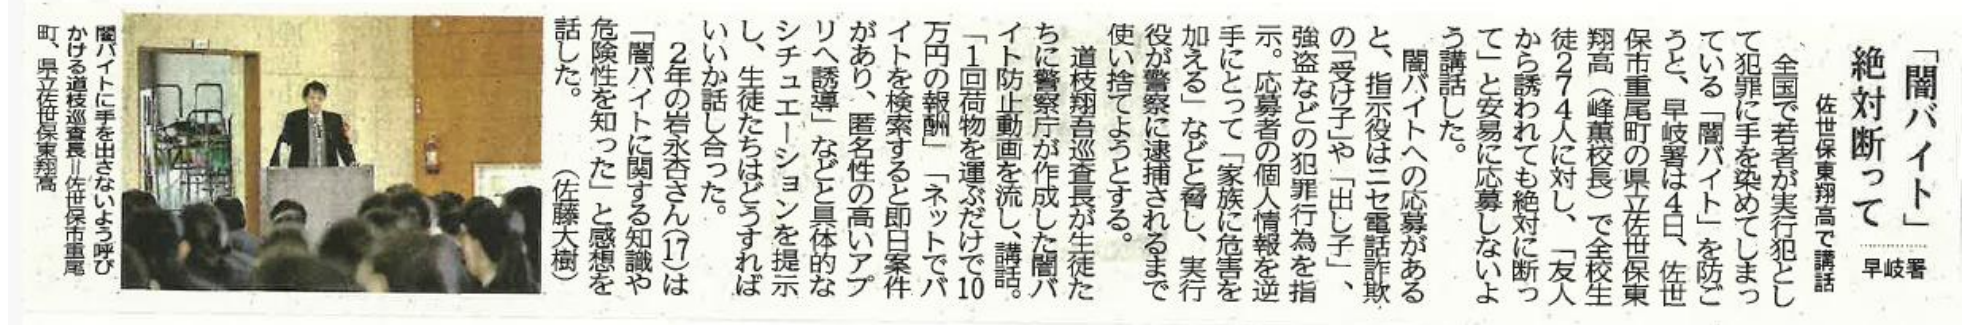 「闇バイト」
絶対断って
早岐署
佐世保東翔高で講話
全国で若者が実行犯とし
て犯罪に手を染めてしまっ
ている「闇バイト」を防ご
うと、早岐署は4日、佐世
保市重尾町の県立佐世保東
翔高(峰薫校長)で全校生
徒274人に対し、「友人
から誘われても絶対に断っ
て」と安易に応募しないよ
う講話した。
闇バイトへの応募がある
と、指示役はニセ電話詐欺
の「受け子」や「出し子」、
強盗などの犯罪行為を指
示。応募者の個人情報を逆
手にとって「家族に危害を
加える」などと脅し、実行
役が警察に逮捕されるまで
使い捨てようとする。
道枝翔吾巡査長が生徒た
ちに警察庁が作成した闇バ
イト防止動画を流し、講話。
「1回荷物を運ぶだけで10
万円の報酬」「ネットでバ
イトを検索すると即日案件
があり、匿名性の高いアプ
リへ誘導」などと具体的な
シチュエーションを提示
し、生徒たちはどうすれば
いいか話し合った。
2年の岩永杏さん(17)は
「闇バイトに関する知識や
危険性を知った」と感想を
話した。 (佐藤大樹)
闇バイトに手を出さないよう呼び
かける道枝巡査長=佐世保市重尾
町、県立佐世保東翔高